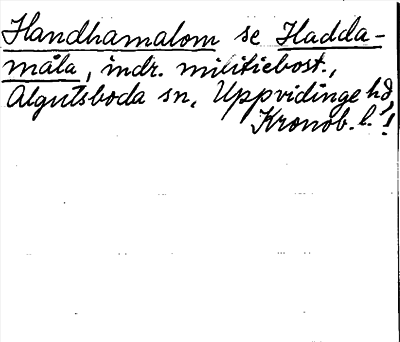 Handhamalom se Hadda-
måla, indr. militiebost.,
Algutsboda sn, Uppvidinge hd,
Kronob. l.!